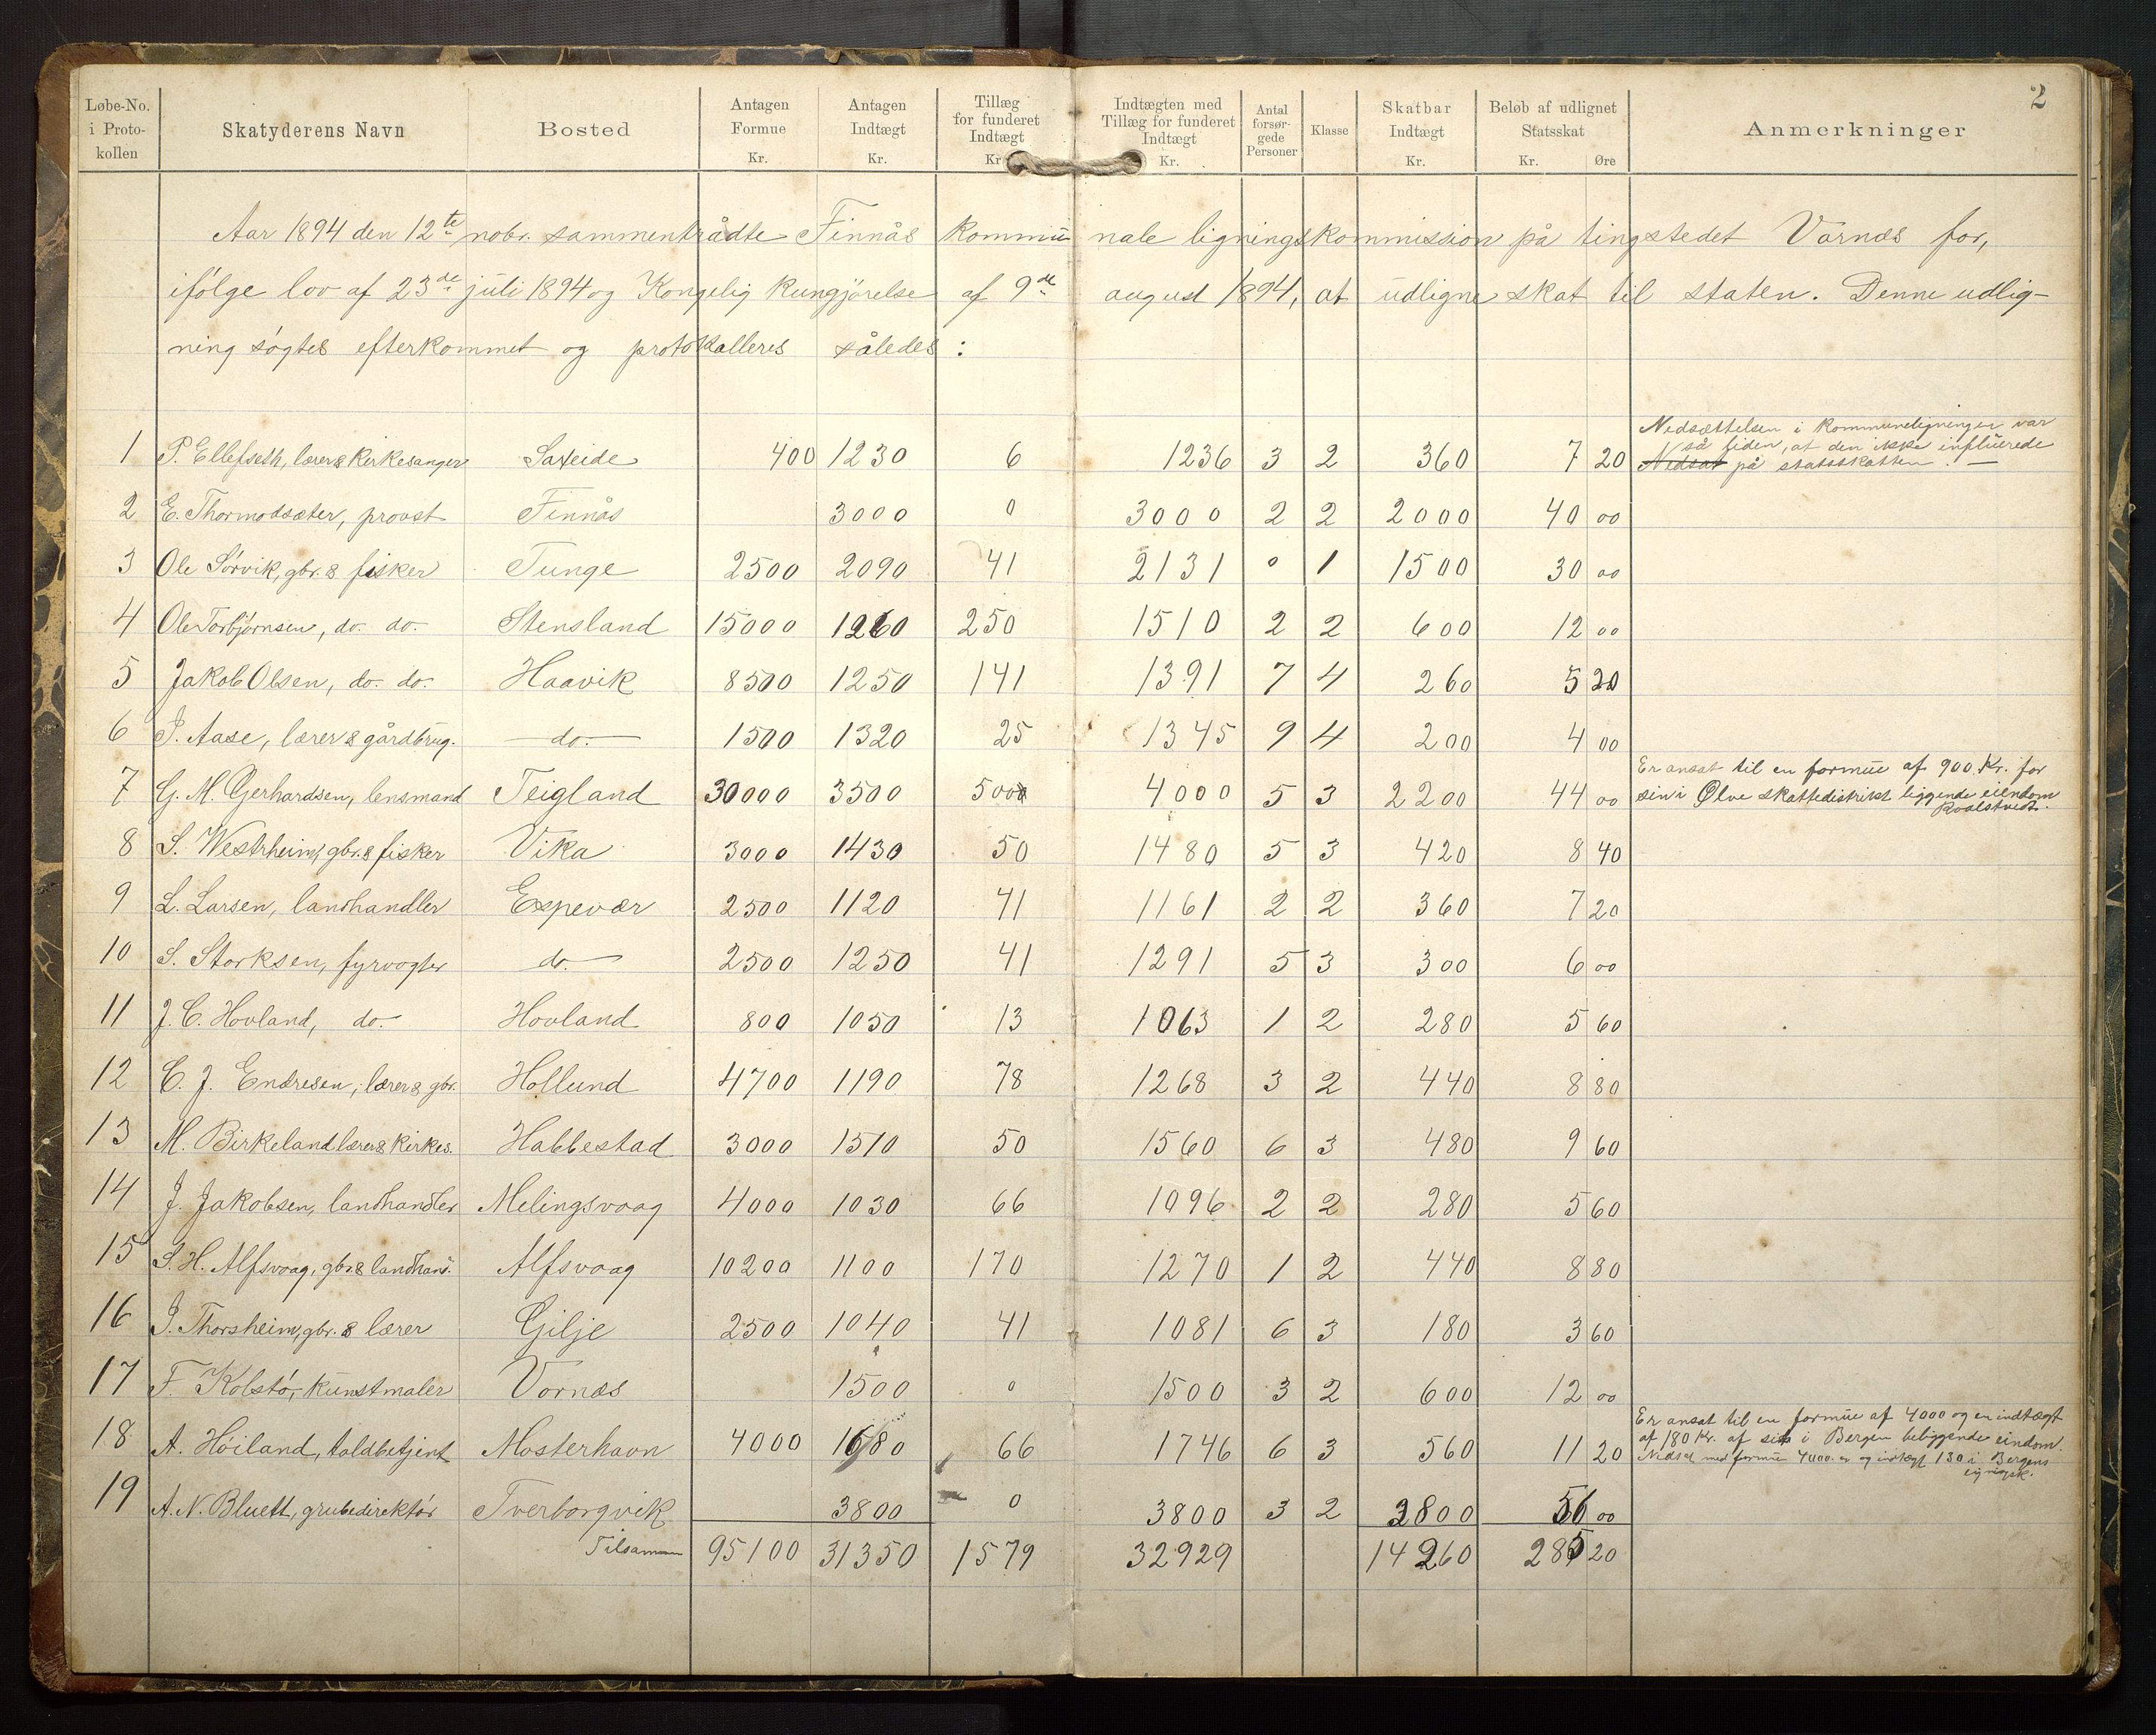 2
Løbe-No. i Proto-kollen | Skatyderens Navn | Bosted | Antagen Formue Kr. | Antagen Indtægt Kr. | Tillæg for funderet Indtægt Kr | Indtægten med Tillæg for funderet Indtægt Kr. | Antal forsør-gede Personer | Klasse | Skatbar Indtægt Kr. | Beløb af udlignet Statsskat Kr. Øre | Anmerkninger
Aar 1894 den 12te nobr. sammentrådte Finnås kommunale ligningskommission på tingstedet Vornæs for,
ifølge lov af 23de juli 1894 og Kongelig kungjörelse af 9de august 1894, at udligne skat til staten. Denne udlig-
ning søgtes efterkommet og protokalleres således:
Nedsættelsen i kommuneligningen var
så liden, at den ikke influerede
1 P. Ellefsen, lærer & kirkesanger 400 1230 6 1236 3 2 360 7 20 Nedsat på statsskatten. —
2 E. Thormodsæter, provst Finnås 3000 0 3000 2 2 2000 40 00
3 Ole Sørvik, gbr. & fisker Tunge 2500 2090 41 2131 0 1 1500 30 00
4 Ole Torbjørnsen, do. do. Stensland 15000 1260 250 1510 2 2 600 12 00
5 Jakob Olsen, do. do. Haavik 8500 1250 141 1391 7 4 260 5 20
6 J. Aase, lærer & gårdbrug. do. 1500 1320 25 1345 9 4 200 4 00
Er ansat til en formue af 900 Kr. for
7 G. M. Gerhardsen, lensmand Teigland 30000 3500 500 4000 5 3 2200 44 00 sin i Ølve skattedistrikt liggende eiendom
Roalstvedt.
8 S. Westrheim, gbr. & fisker Vika 3000 1430 50 1480 5 3 420 8 40
9 L. Larsen, landhandler Espevær 2500 1120 41 1161 2 2 360 7 20
10 S. Storksen, fyrvogter do. 2500 1250 41 1291 5 3 300 6 00
11 J. C. Hovland, do. Hovland 800 1050 13 1063 1 2 280 5 60
12 C. J. Endresen, lærer & gbr. Hollund 4700 1190 78 1268 3 2 440 8 80
13 M. Birkeland lærer & kirkes. Habbestad 3000 1510 50 1560 6 3 480 9 60
14 J. Jakobsen, landhandler Melingsvaag 4000 1030 66 1096 2 2 280 5 60
15 S. H. Alfsvaag, gbr. & landhand. Alfsvaag 10200 1100 170 1270 1 2 440 8 80
16 J. Thorsheim, gbr. & lærer Gilje 2500 1040 41 1081 6 3 180 3 60
17 F. Kolstø, kunstmaler Vornæs 1500 0 1500 3 2 600 12 00
Er ansat til en formue af 4000 og en indtægt
af 180 Kr. af sit i Bergen beliggende eindom.
18 A. Høiland, toldbetjent Mosterhavn 4000 1680 66 1746 6 3 560 11 20 Nedsat med formue 4000 kr og indtægt 130 i Bergens
19 A. N. Bluett, grubedirektør Tverborgvik 3800 0 3800 3 2 2800 56 00
Tilsammen 95100 31350 1579 32929 14260 285 20